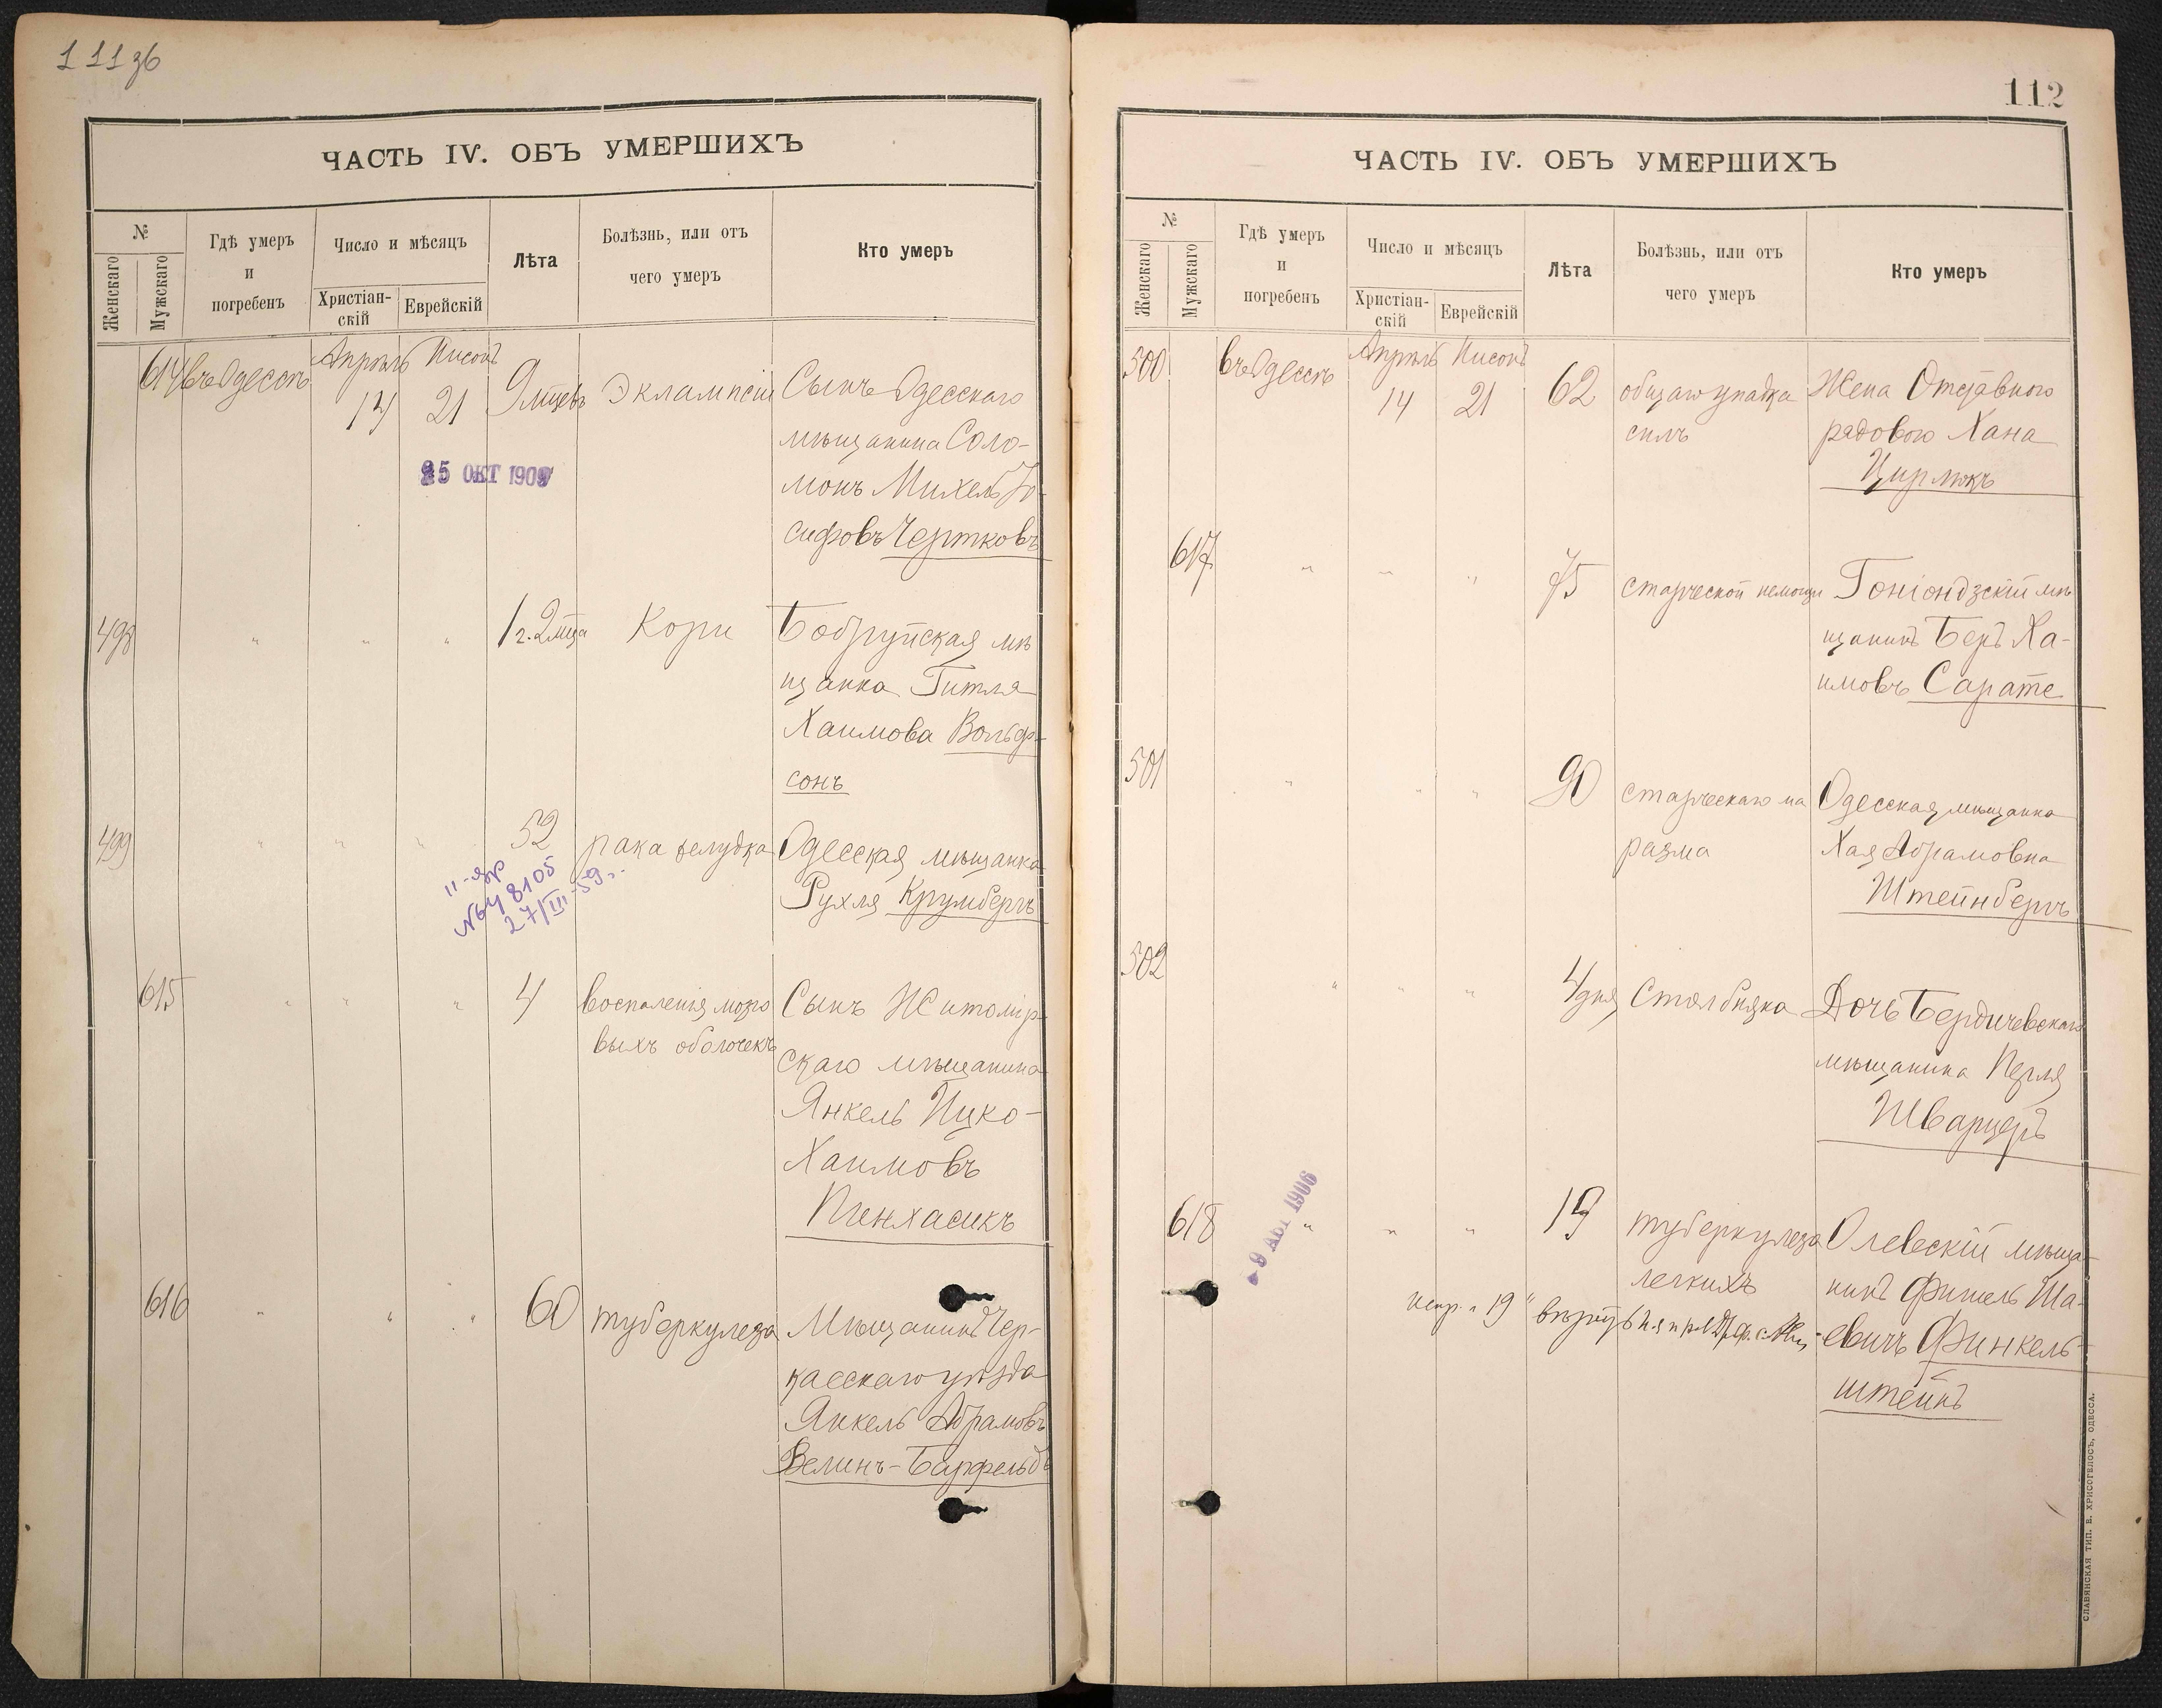 111 об
ЧАСТЬ IV. ОБЪ УМЕРШИХЪ
№
Женскаго
Мужскаго
Гдѣ умеръ
и
погребенъ
Число и мѣсяцъ
Христіан-
скій
Еврейскій
Лѣта
Болѣзнь, или отъ
чего умеръ
Кто умеръ
614 въ Одессѣ Апрѣль 14 Нисонъ 21 9 мцевъ Эклампсіи Сынъ Одесскаго
мѣщанина Соло-
монъ Михель Іо-
сифовъ Чертковъ
25 ОКТ 190
498 " " " 1 г. 2 мца Кори Бобруйская мѣ
щанка Гитля
Хаимова Вольф-
сонъ
499 " " " 52 рака желудка Одесская мѣщанка
Рухля Крумбергъ
II-яр
№648105
27/III-59г.
615 " " " 4 воспаленія мозго Сынъ Житомір-
выхъ оболочекъ скаго мѣщанина
Янкель Ицко-
Хаимовъ
Пинхасикъ
616 " " " 60 туберкулеза Мѣщанинъ Чер-
касскаго уѣзда
Янкель Абрамовъ
Велинъ-Барфельдъ
112
ЧАСТЬ IV. ОБЪ УМЕРШИХЪ
№
Женскаго
Мужскаго
Гдѣ умеръ
и
погребенъ
Число и мѣсяцъ
Христіан-
скій
Еврейскій
Лѣта
Болѣзнь, или отъ
чего умеръ
Кто умеръ
500 въ Одессѣ Апрѣль 14 Нисонъ 21 62 общаго упадка Жена Отставного
силъ рядового Хана
Цирлюкъ
617 " " " 75 старческой немощи Гоніондзскій мѣ
щанинъ Беръ Ха-
имовъ Сарате
501 " " " 90 старческаго ма Одесская мѣщанка
разма Хая Абрамовна
Штейнбергъ
502 " " " 4 дня Столбняка Дочь Бердичевскаго
мѣщанина Перля
Шварцеръ
618 " " " 19 туберкулеза Олевскій мѣща-
легкихъ нинъ Фишель Ша-
евичъ Финкель-
штейнъ
- 9 АВГ 1906
испр. "19"
СЛАВЯНСКАЯ ТИП. Е. ХРИСОГЕЛОСЪ, ОДЕССА.